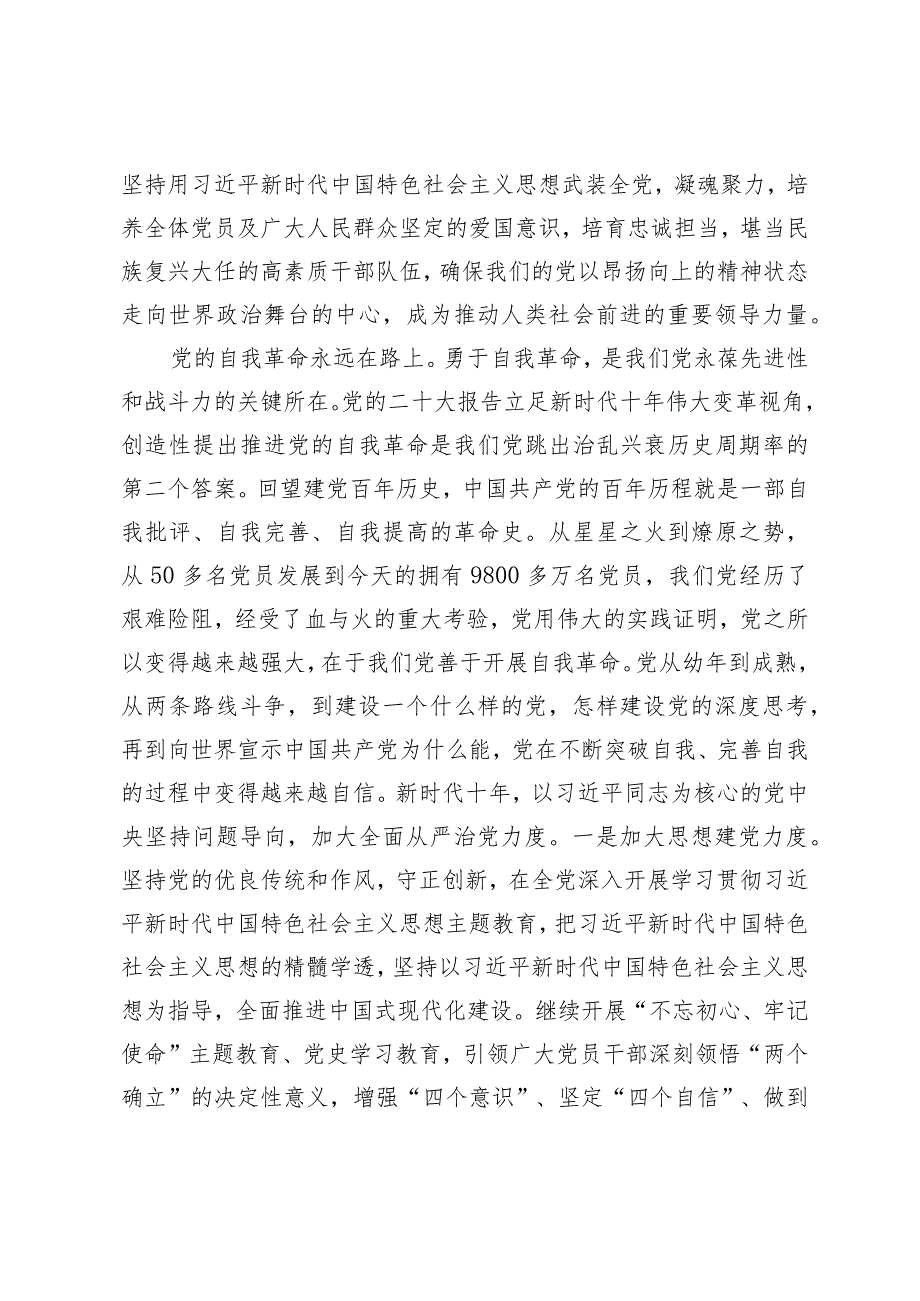 坚持用习近平新时代中国特色社会主义思想武装全党，凝魂聚力，培
养全体党员及广大人民群众坚定的爱国意识，培育忠诚担当，堪当民
族复兴大任的高素质干部队伍，确保我们的党以昂扬向上的精神状态
走向世界政治舞台的中心，成为推动人类社会前进的重要领导力量。
党的自我革命永远在路上。勇于自我革命，是我们党永葆先进性
和战斗力的关键所在。党的二十大报告立足新时代十年伟大变革视角，
创造性提出推进党的自我革命是我们党跳出治乱兴衰历史周期率的
第二个答案。回望建党百年历史，中国共产党的百年历程就是一部自
我批评、自我完善、自我提高的革命史。从星星之火到燎原之势，
从 50 多名党员发展到今天的拥有 9800 多万名党员，我们党经历了
艰难险阻，经受了血与火的重大考验，党用伟大的实践证明，党之所
以变得越来越强大，在于我们党善于开展自我革命。党从幼年到成熟，
从两条路线斗争，到建设一个什么样的党，怎样建设党的深度思考，
再到向世界宣示中国共产党为什么能，党在不断突破自我、完善自我
的过程中变得越来越自信。新时代十年，以习近平同志为核心的党中
央坚持问题导向，加大全面从严治党力度。一是加大思想建党力度。
坚持党的优良传统和作风，守正创新，在全党深入开展学习贯彻习近
平新时代中国特色社会主义思想主题教育，把习近平新时代中国特色
社会主义思想的精髓学透，坚持以习近平新时代中国特色社会主义思
想为指导，全面推进中国式现代化建设。继续开展“不忘初心、牢记
使命”主题教育、党史学习教育，引领广大党员干部深刻领悟“两个
确立”的决定性意义，增强“四个意识”、坚定“四个自信”、做到